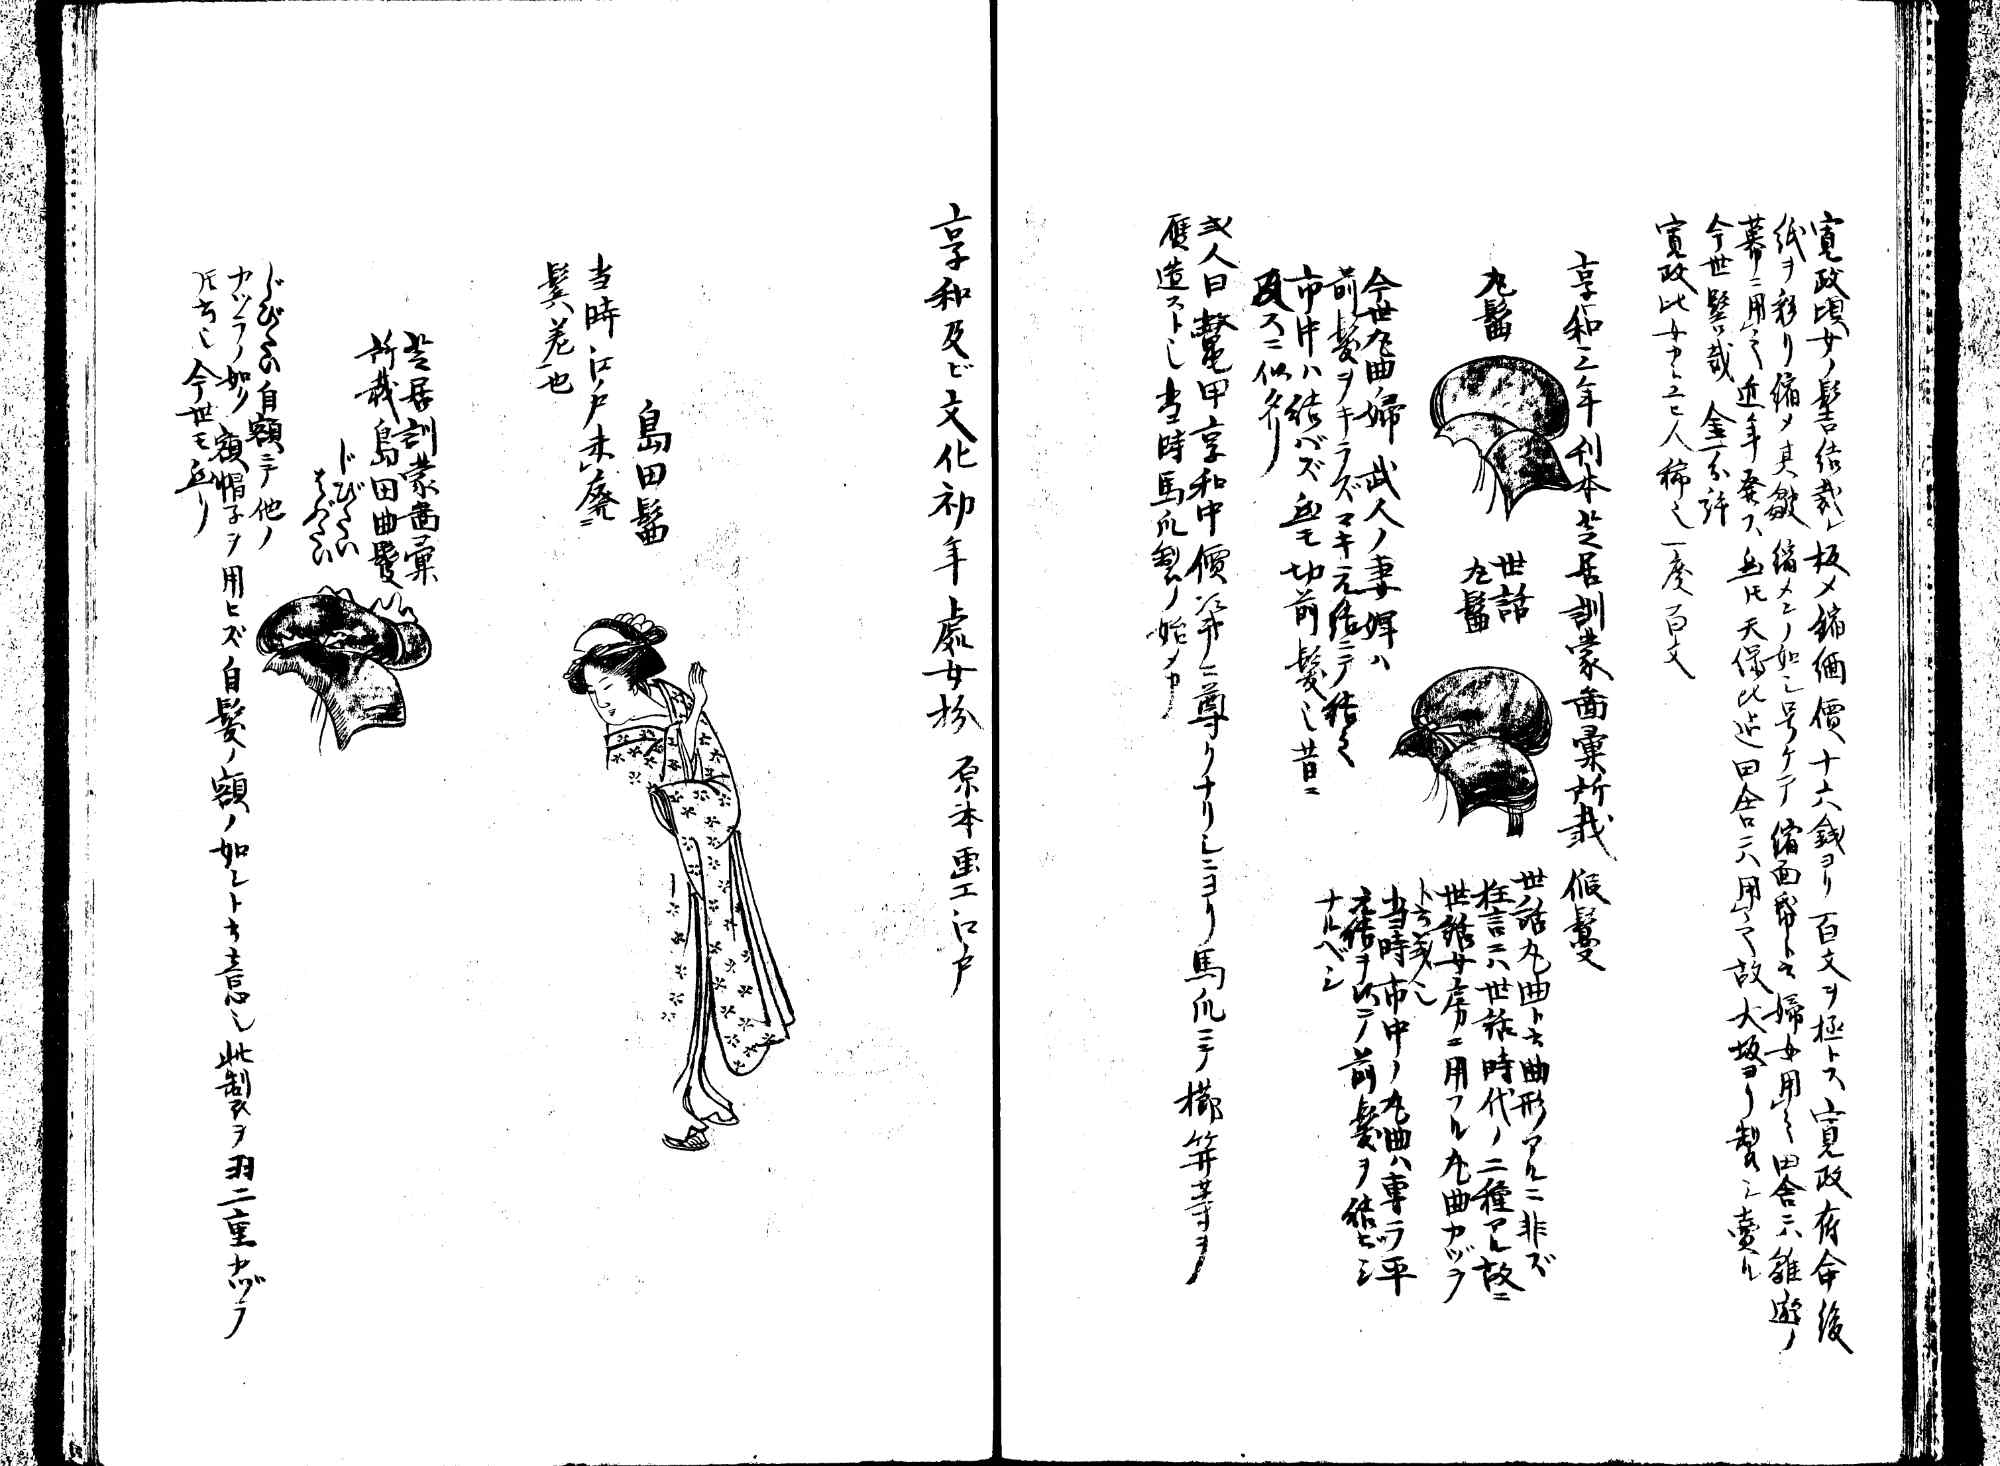 寛政頃女ノ髻結裁レ板〆縮緬價十六銭ヨリ百文ヲ極トス寛政府命後
紙ヲ彩リ縮メ其皺縮メンノ如シ号ケテ縮面帋ト云婦女用之田舎ニハ雛遊ノ
幕ニ用之近年廃ス然圧天保比迄田舎ニハ用之故大坂ヨリ製シ売ル
今世髻裁金一分許
寛政比女カミユヒ人稀也一度百文
享和三年刊本芝居訓蒙啚彙所載假鬘
丸髷
世話
丸髷
世話丸曲ト云曲形アルニ非ズ
狂言ニハ世話時代ノ二種アル故ニ
世話女房ニ用フル丸曲カヅラ
ト云義也
当時市中ノ丸曲ハ専ラ平
元結ヲ以ニノ前髪ヲ結ヒシ
ナルベシ
今世丸曲ノ婦武人ノ妻婢ハ
前髪ヲキラズマキ元結ニテ結之
市中ハ結バズ然モ切前髪也昔ニ
反スニ似タリ
或人曰鼈甲享和中價漸クニ尊クナリシニヨリ馬爪ニテ櫛笄等ヲ
贋造スト也当時馬爪製ノ始メカ
享和及ビ文化初年上處女扮原本画工江戸
島田髷
当時江戸未廃ニ
鬂差也
芝居訓蒙啚彙
所載島田曲鬘
じびたい
はぶたい
じびたい自額ニテ他ノ
カツラノ如ク額帽子ヲ用ヒズ自髪ノ額ノ如シト云意也此製ヲ羽二重カヅラ
圧云也今世モ有リ